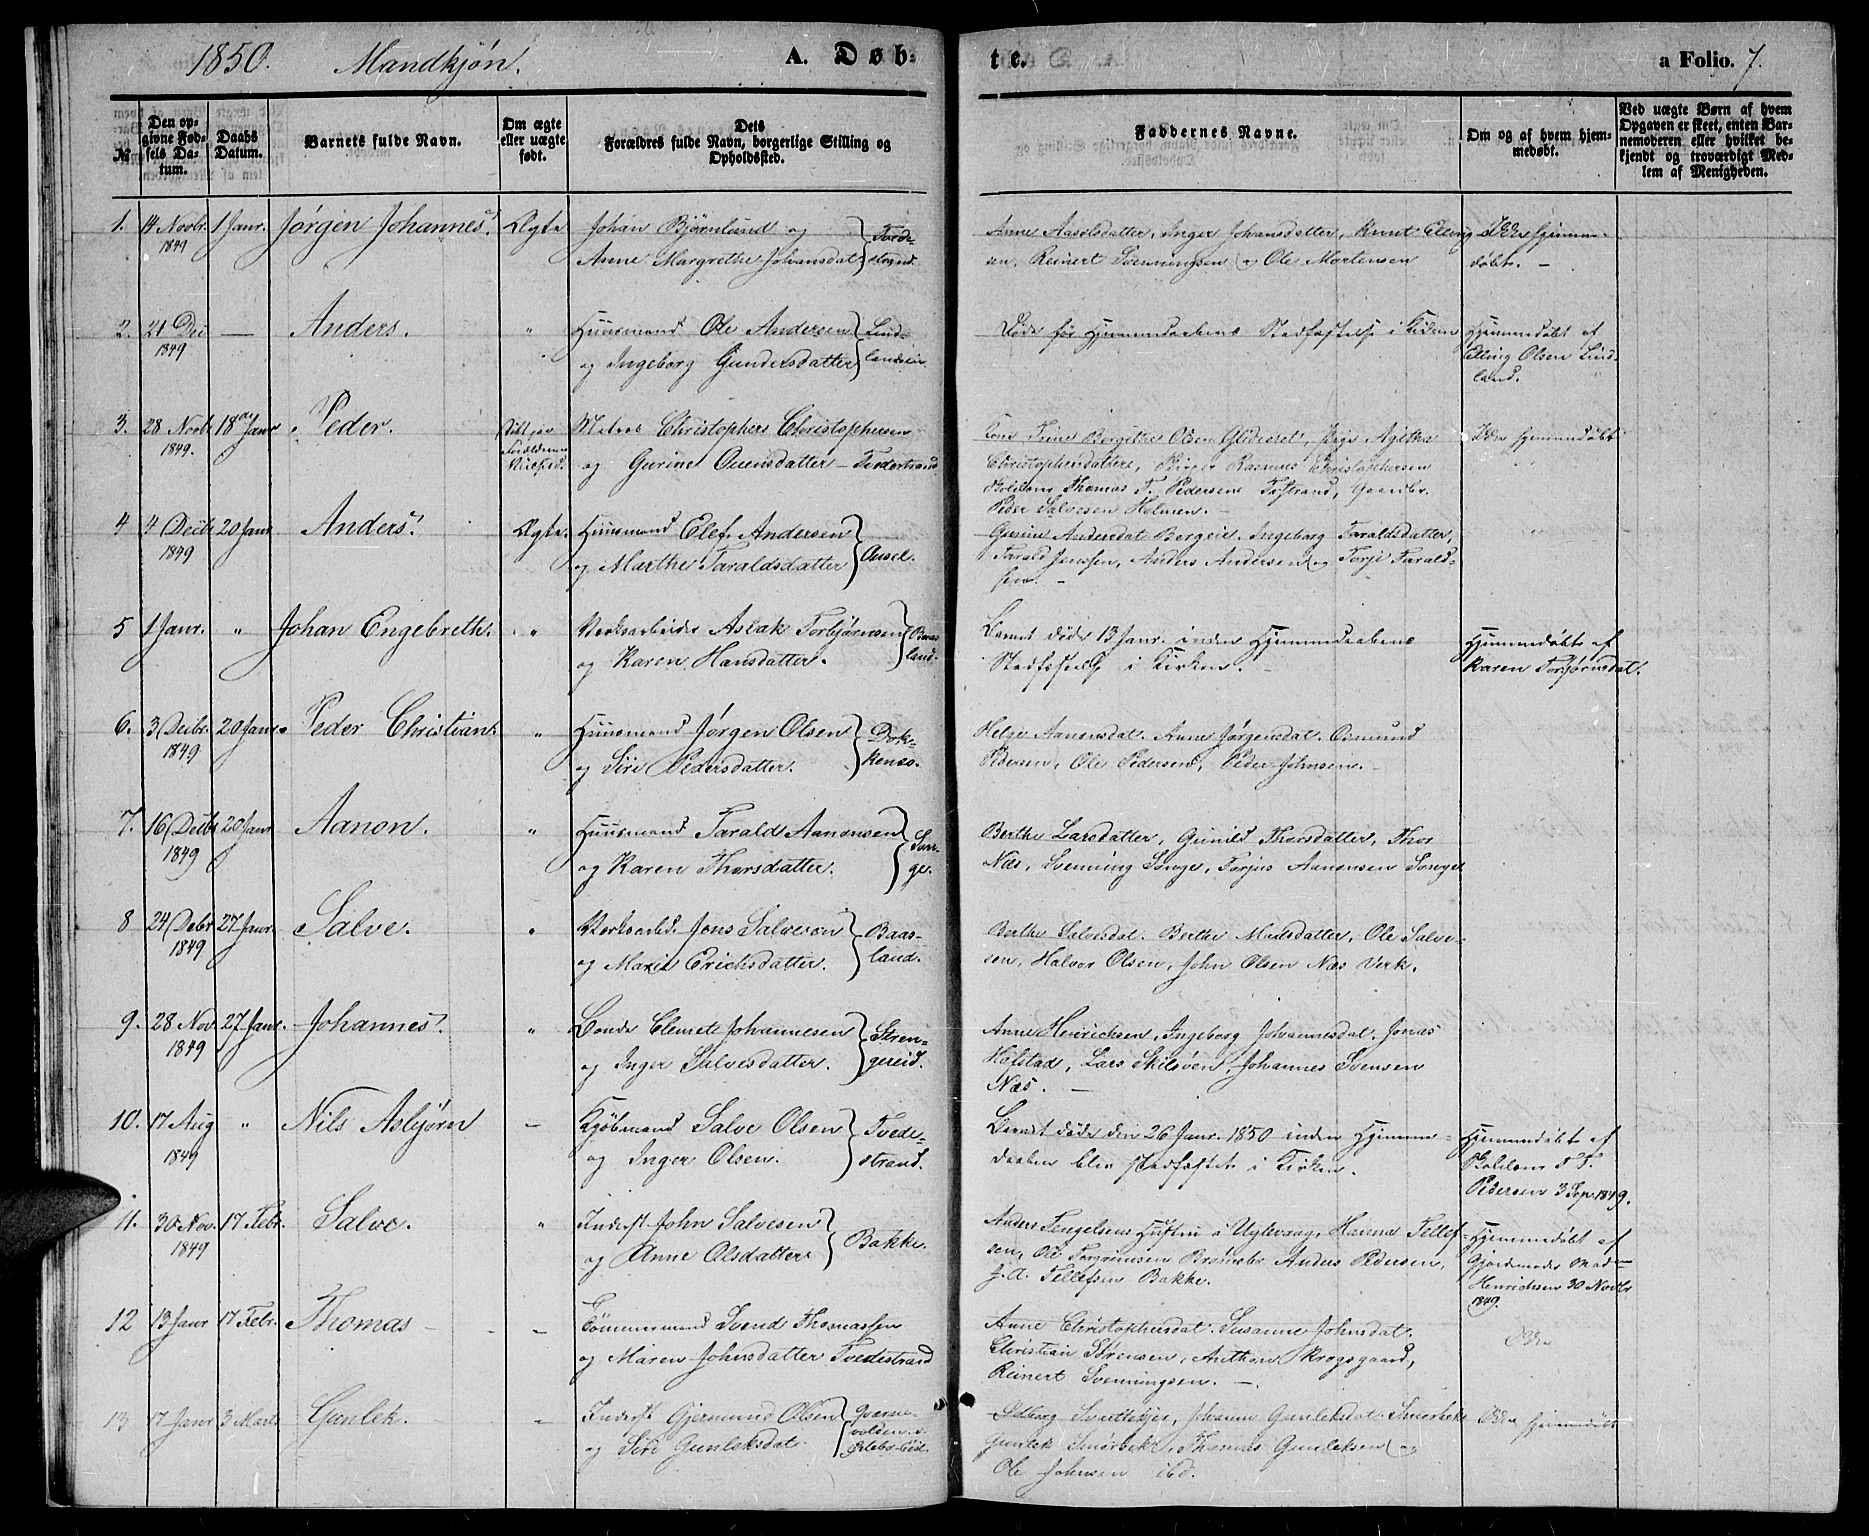 1850. Mandkjøn. A. Døb=
te. a Folio. 7.
№
Den op-
givne Fød-
sels Da-
tum.
Daabs
Datum.
Barnets fulde Navn.
Om ægte
eller uægte
født.
Dets
Forældres fulde Navn, borgerlige Stilling og
Opholdssted.
Faddernes Navne.
Om og af hvem hjem-
medøbt.
Ved uægte Børn af hvem
Opgaven er skeet, enten Bar-
nemoderen eller hvilket be-
kjendt og troværdigt Med-
lem af Menigheden.
1. 14 Novbr. 1849 1 Janr. Jørgen Johannes. Ægte
Johan Bjørnlund og
Anne Margrethe Johansdat. Tvede-
strand.
Anne Inger Johansdatter, Knut Elling-
sen, Reinert Svenningsen og Ole Mortensen
Ikke hjemme-
døbt. —
2. 21 1849 — Anders. "
Huusmand Ole Andersen
og Ingeborg Gundersdatter
Døde før Hjemmedaabens Stadfæstelse i Kirken
Hjemmedøbt af
Elling Olsen Lind-
land.
3. 28 Novbr 1849. 18de Janr Peder.
Matros Christophers Christophersen
og Gurine Ouensdatter —
Christophersdatter, Rasmus Christophersen
Thomas F. Pedersen Gaardbr.
Peder Salvesen Holmen. —
Ikke hjemmedøbt
4 4 Decbr 1849 20 Janr Anders. Ægte.
Huusmand Elef Andersen
og Marthe Taraldsdatter Ausel.
Gurine Andersdat Bergeie. Ingeborg Taraldsdatter,
Tarald Jensen, Anders Andersen og Terje Tarald-
sen. —
5 1 Janr. " Johan Engebreth. "
Verksarbeider Aslak Torbjørnsen
og Karen Hansdatter. Baas-
land.
Barnet døde 13 Janr. inden Hjemmedaabens
Stadfæstelse i Kirken. —
Hjemmedøbt af
Karen Torbjørnsdat.
6. 3 Decbr. 1849 20 Janr. Peder Christian. "
Huusmand Jørgen Olsen
og Siri Pedersdatter. Dok-
kenes.
Helge Aanonsdat. Anne Jørgensdat. Osmund
Pedersen, Ole Pedersen, Peder Johnsen. —
7. 16 Decbr 1849 20 Janr Aanon. "
Huusmand Tarald Aanonsen
og Karen Thorsdatter. Son-
ge.
Berthe Larsdatter, Gunild Thorsdatter, Thor
Næs, Svenning Songe, Terjus Aanonsen Songe
8 24 Decbr 1849 27 Janr. Salve. "
Verksarbd. Jens Salvesøn
og Marie Ericksdatter. Baas-
land.
Berthe Salvesdat. Berthe Madsdatter, Ole Salve-
sen, Halvor Olsen, John Olsen Næs Verk.
9. 28 Nov 1849 27 Janr. Johannes. "
Bonde Clemet Johannesen
og Inger Salvesdatter. Stren-
gereid.
Anne Henrichsen, Ingeborg Johannesdat. Jonas
Hofstad, Lars Skilsøen, Johannes Svensen
Næs. —
10. 17 Aug 1849 " Nils Asbjørn —
Kjøbmand Salve Olsen
og Inger Olsen. Tvede-
strand.
Barnet døde den 26 Janr. 1850 inden Hjemme-
daaben blev stadfæstet i Kirken.
Hjemmedøbt af
T.
Pedersen 3 Sep. 1849.
11. 30 Nov. 1849 17 Febr. Salve. "
Inderst John Salvesen
og Anne Olsdatter Bakke.
Anders Tengelsens Hustru Hanna Tellef-
sen, Ole Anders Pedersen,
J. A. Tellefsen Bakke.
Hjemmedøbt af
Gjordmoder Mad
Henrichsen 30 Novbr
1849.
12 13 Janr 17 Febr. Thomas — —
Tømmermand Svend Thomassen
og Maren Johnsdatter Tvedestrand
Anne Christophersdat. Susanne Johnsdat.
Christian Sørensen, Anthon Krogsgaard,
Reinert Svenningsen. —
Ikke
13 17 Janr 3 Marts Gunlek. —
Inderst Gjermund Olsen
og Siri Gunleksdat.
Johanne Gunleksdat.
Gunlek Smørbek, Thomas Gunleksen og
Ole Johnsen ibd.
Ikke hjemmedøbt